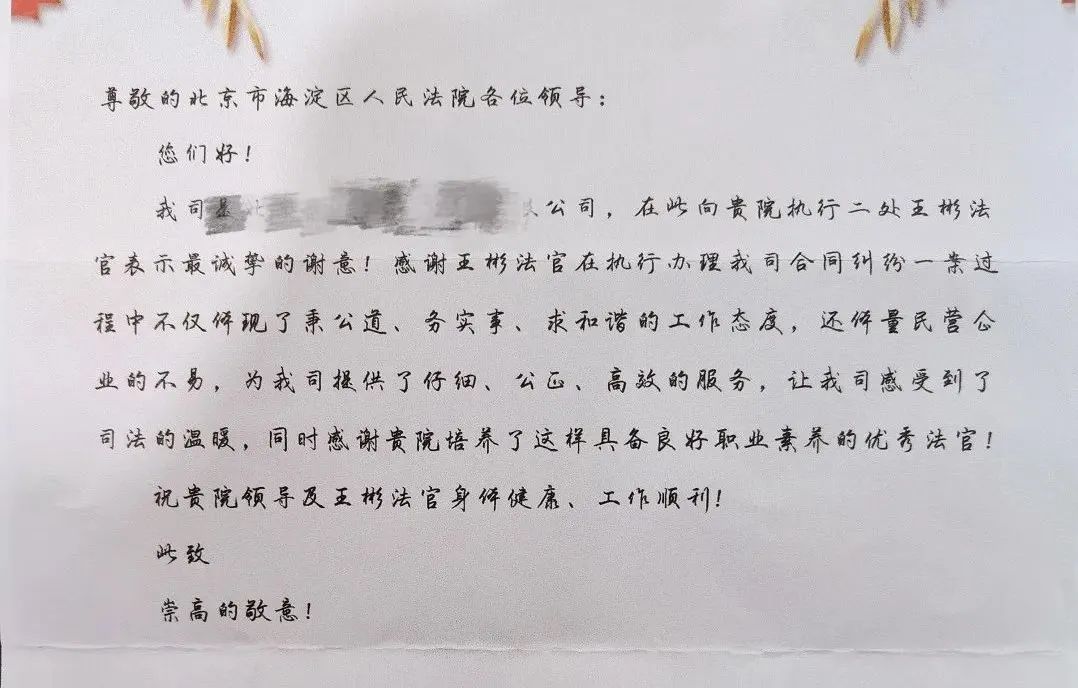 尊敬的北京市海淀区人民法院各位领导：
您们好！
我司 公司，在此向贵院执行二处王彬法
官表示最诚挚的谢意！感谢王彬法官在执行办理我司合同纠纷一案过
程中不仅体现了秉公道、务实事、求和谐的工作态度，还体量民营企
业的不易，为我司提供了仔细、公正、高效的服务，让我司感受到了
司法的温暖，同时感谢贵院培养了这样具备良好职业素养的优秀法官！
祝贵院领导及王彬法官身体健康、工作顺利！
此致
崇高的敬意！